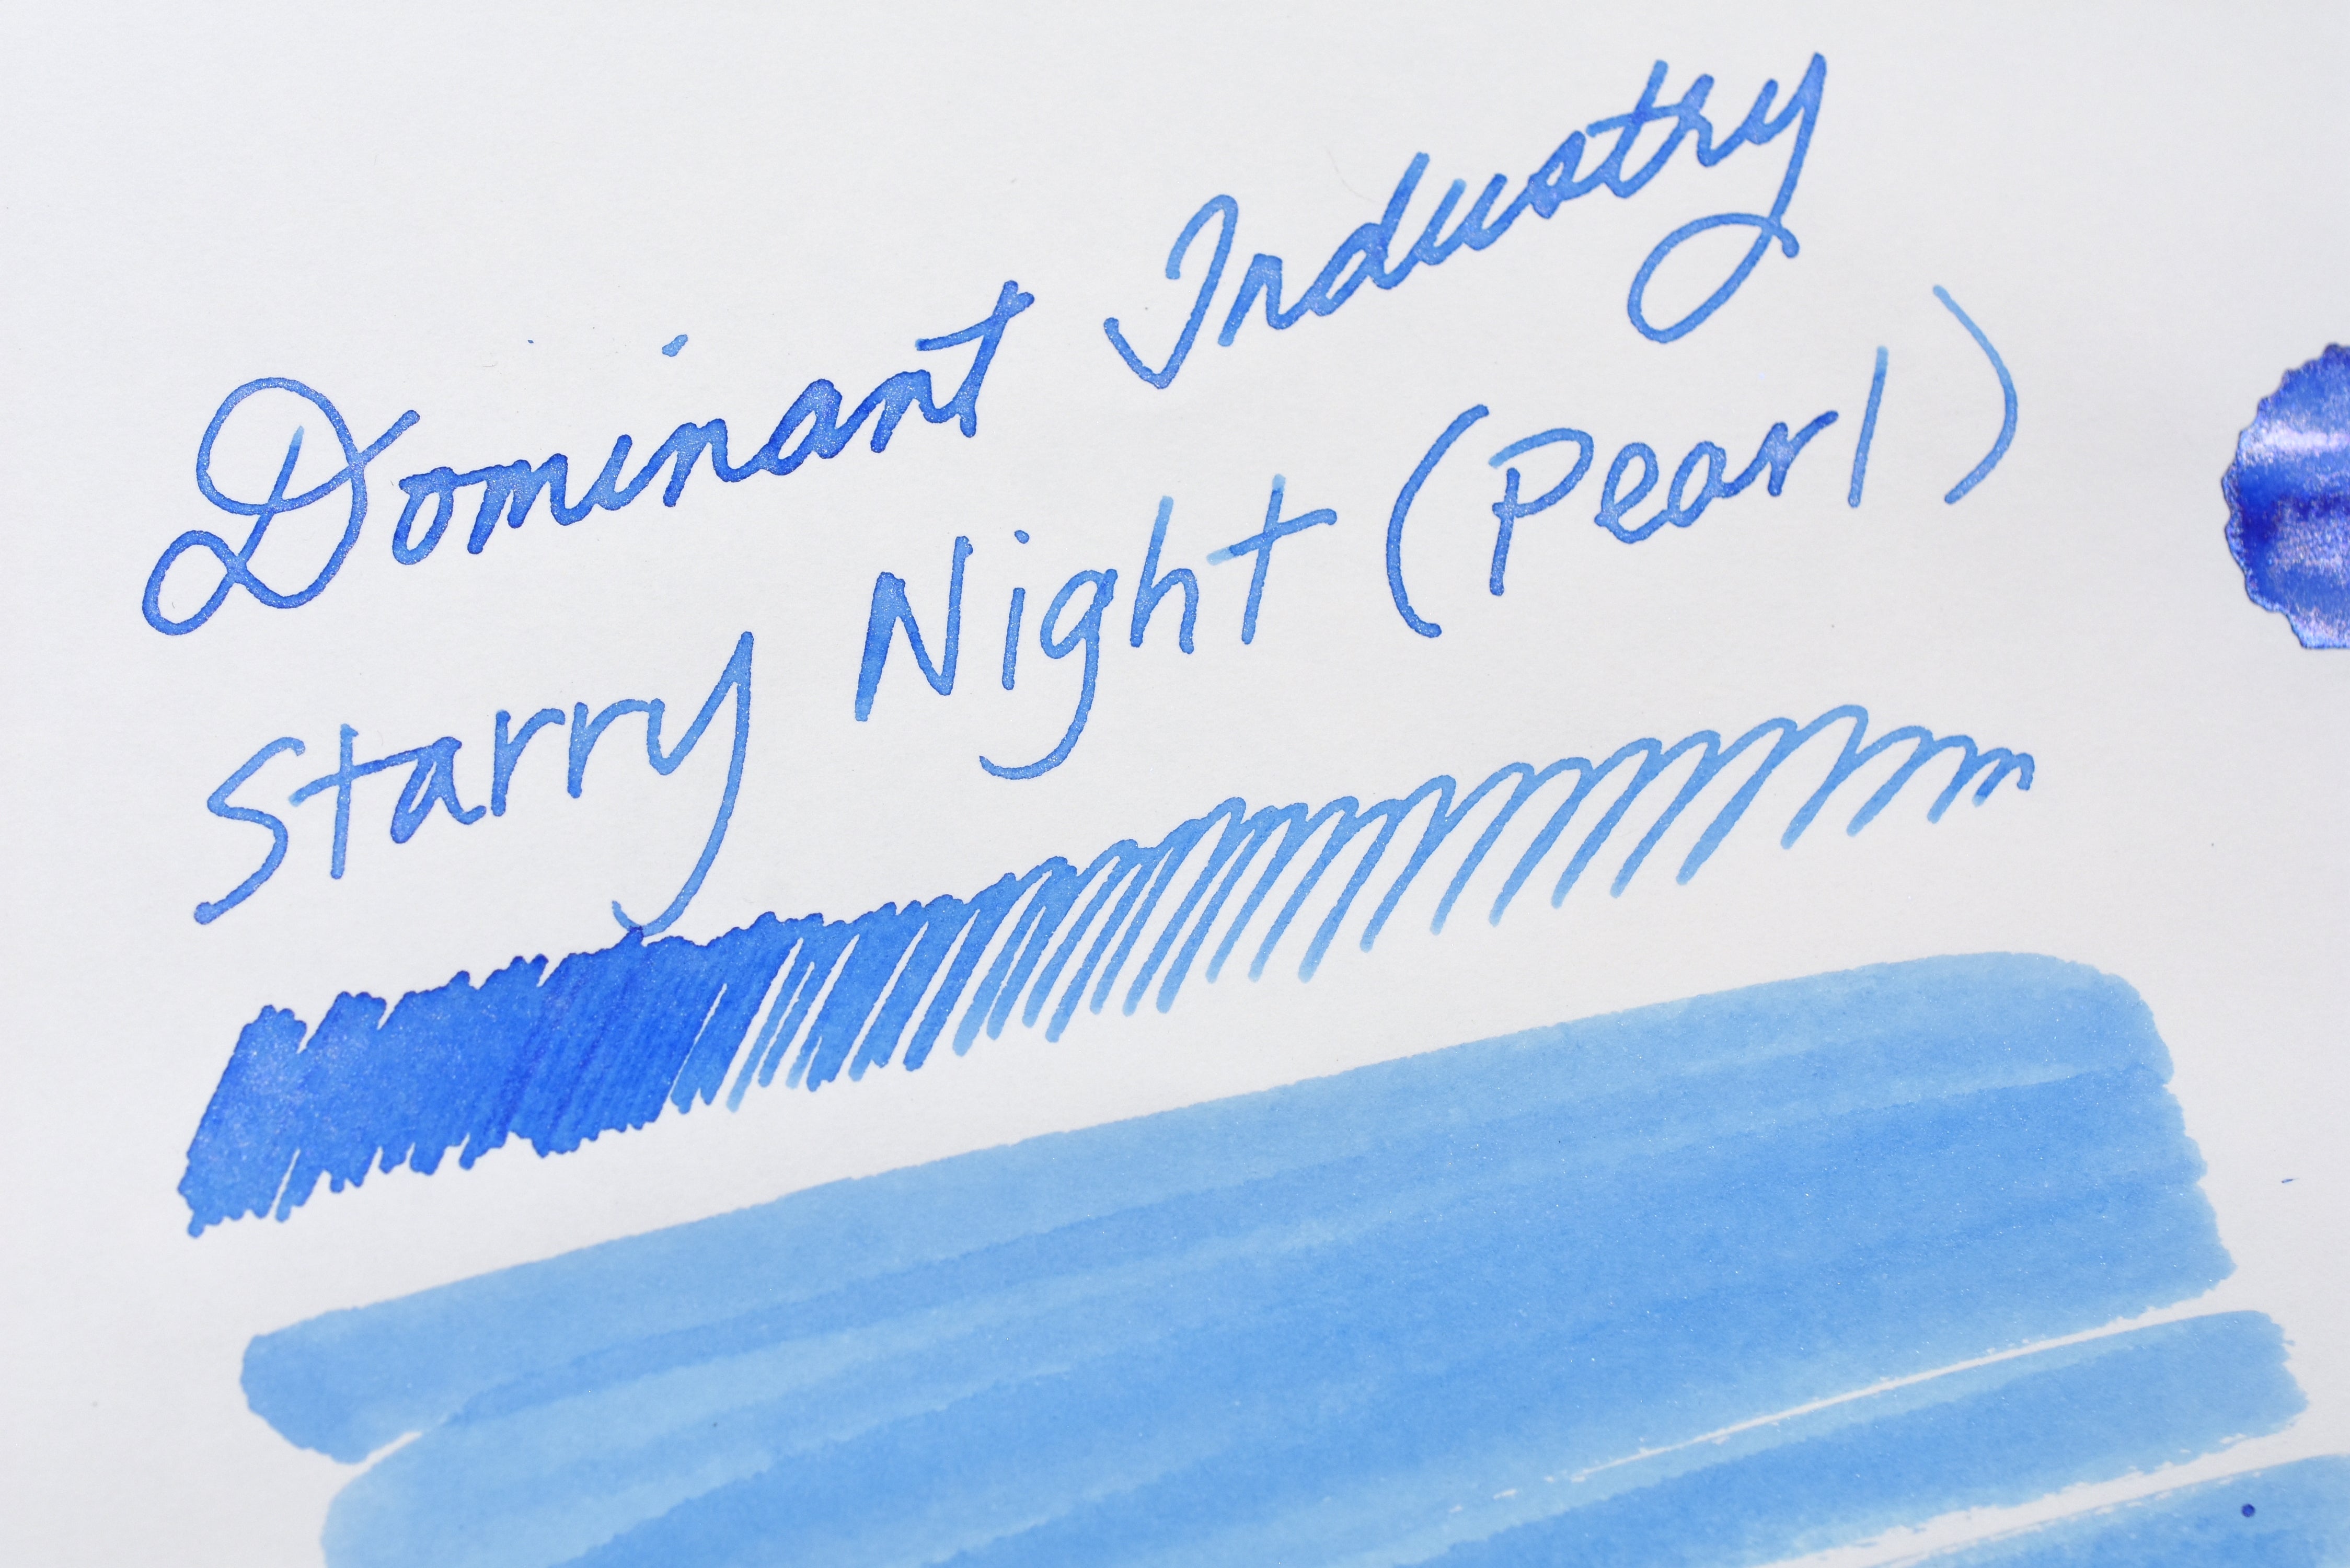 Dominant Industry
Starry Night (Pearl)